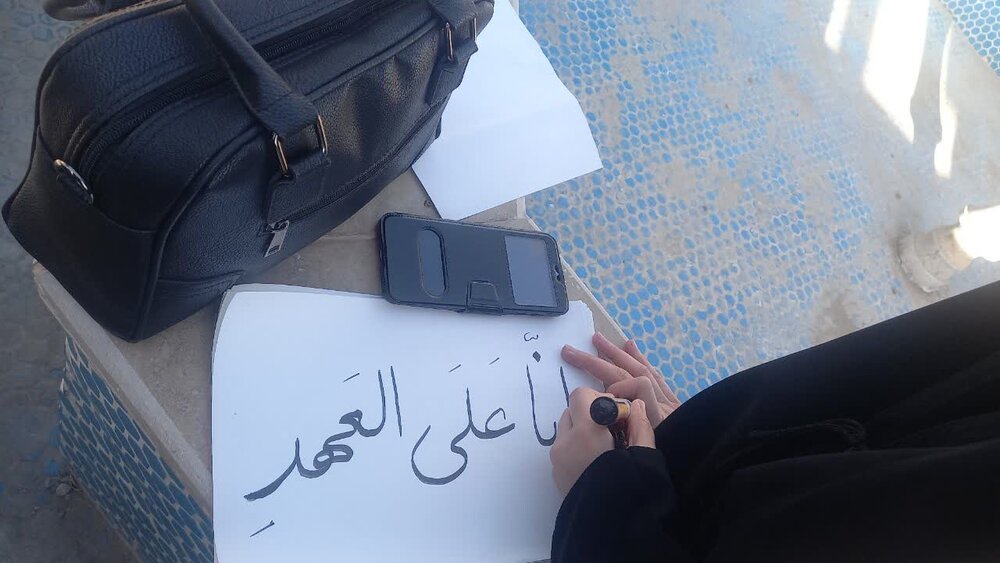 انّا عَلَى العَهدِ